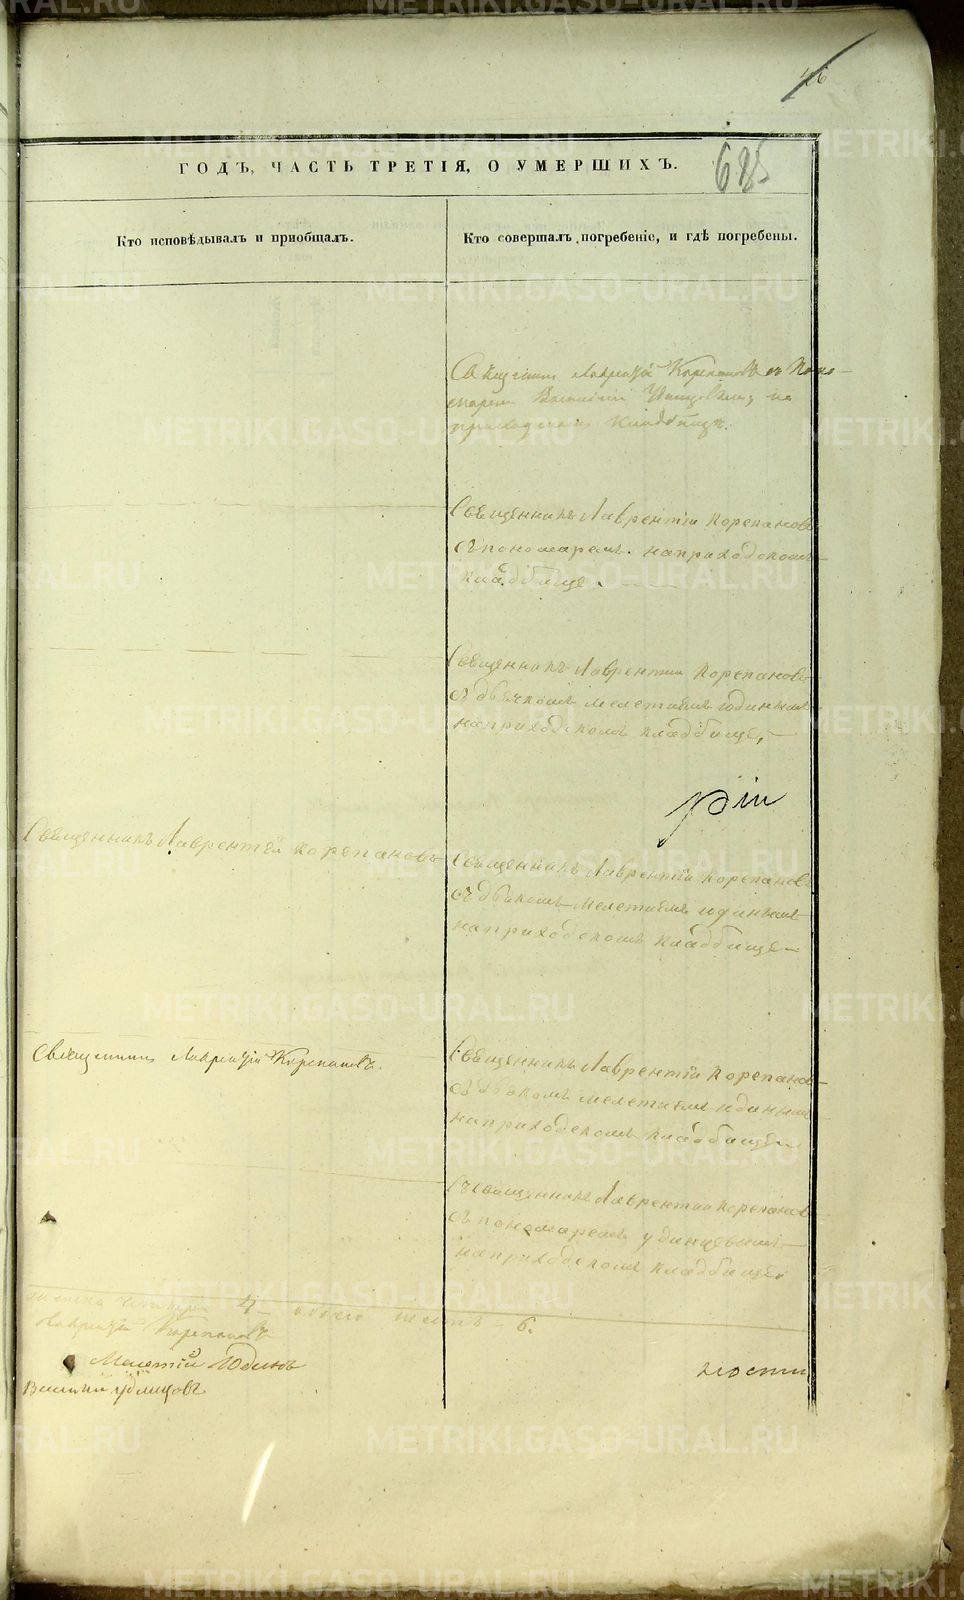 46
ГОДЪ, ЧАСТЬ ТРЕТІЯ, О УМЕРШИХЪ.
685
Кто исповѣдывалъ и пріобщалъ.
Кто совершалъ погребеніе, и гдѣ погребены.
Священникъ Лаврентій Корепановъ съ Поно-
марем Василіем на
приходскомъ кладбищѣ.
Священникъ Лаврентій Корепановъ
съ пономаремъ на приходскомъ
кладбище
Священникъ Лаврентій Корепановъ
съ дьячкомъ Мелетіемъ Юдинымъ
на приходскомъ кладбище,
ріи
Священникъ Лаврентій Корепановъ
Священникъ Лаврентій Корепановъ
съ дьякомъ Мелетіемъ Юдинымъ
на приходскомъ кладбище
Священникъ Лаврентій Корепановъ.
Священникъ Лаврентій Корепанов
съ дьякомъ Мелетіемъ Юдинымъ
на приходскомъ кладбище
Священникъ Лаврентій Корепанов
съ пономаремъ Удинцевымъ
на приходскомъ кладбище
четыре 4 — обоего шесть — 6.
Лаврентій Корепановъ
Мелетій Юдинъ
Василій Удинцовъ
ности
METRIKI.GASO-URAL.RU